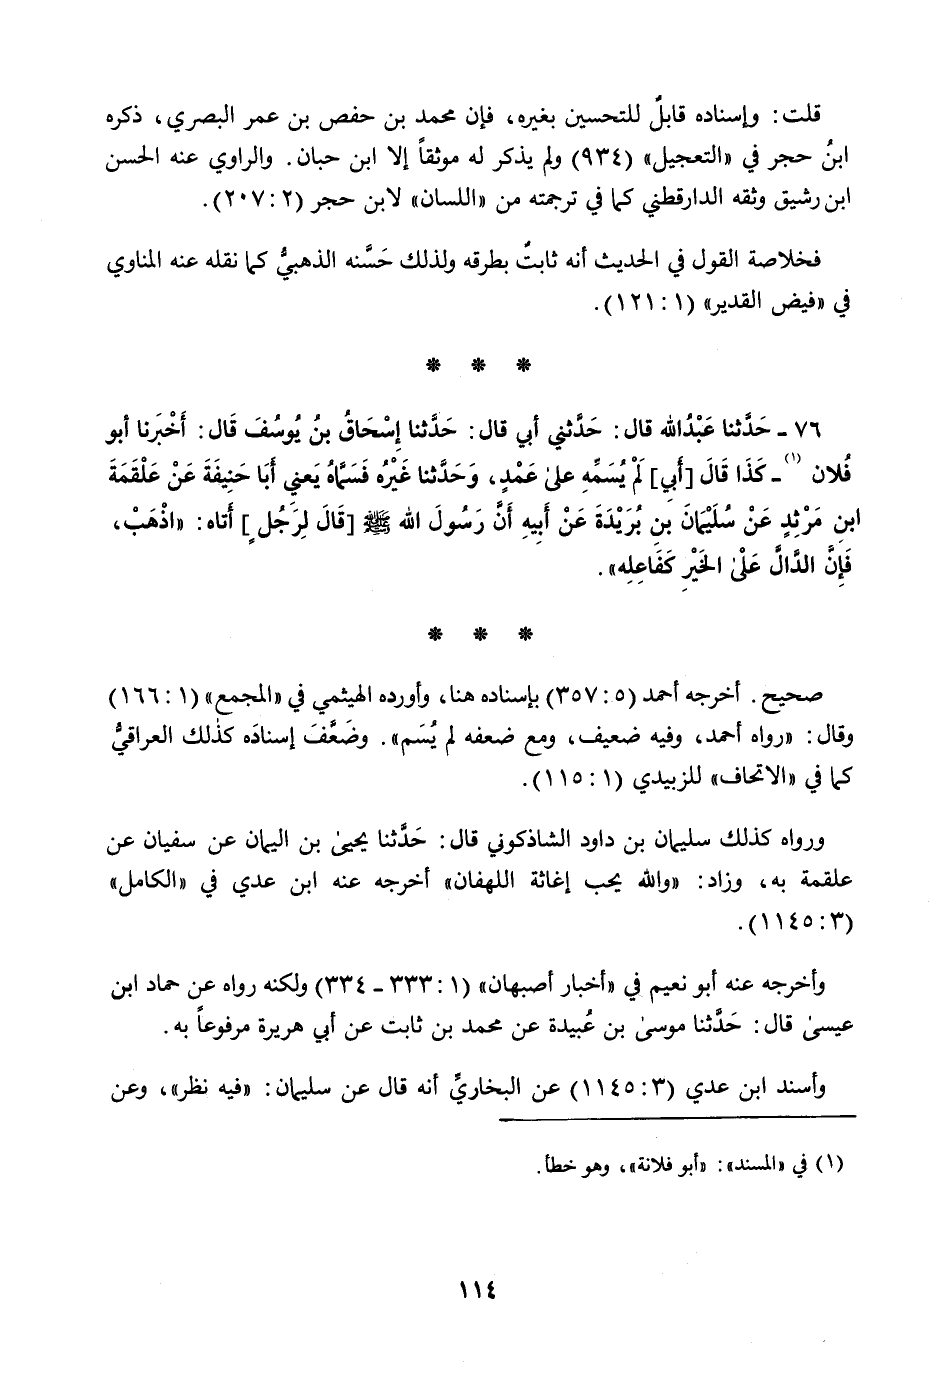 قلت: وإسناده قابلٌ للتحسين بغيره، فإن محمد بن حفص بن عمر البصري، ذكره
ابنُ حجر في «التعجيل» (٩٣٤) ولم يذكر له موثقاً إلا ابن حبان. والراوي عنه الحسن
ابن رشيق وثقه الدارقطني كما في ترجمته من «اللسان» لابن حجر (٢: ٢٠٧).
فخلاصة القول في الحديث أنه ثابتٌ بطرقه ولذلك حَسَّنه الذهبيُّ كما نقله عنه المناوي
في «فيض القدير» (١: ١٢١).
* * *
٧٦ ـ حَدَّثنا عَبْدُالله قال: حَدَّثني أبي قال: حَدَّثنا إسْحَاقُ بنُ يُوسُفَ قَال: أَخْبَرنا أبو
فُلان (١) ـ كَذَا قَالَ [أَبي] لَمْ يُسَمِّه علىٰ عَمْدٍ، وَحَدَّثنا غَيْرُه فَسَمَّاهُ يَعني أَبَا حَنِيفَةَ عَنْ عَلْقَمَةَ
ابنِ مَرْثِدٍ عَنْ سُلَيْمَانَ بنِ بُرَيْدَةَ عَنْ أَبِيه أَنَّ رَسُولَ الله ﷺ [قَالَ لِرَجُلٍ] أَتاه: «اذْهَبْ،
فَإِنَّ الدَّالَّ عَلىٰ الخَيْرِ كَفَاعِلِه».
* * *
صحيح. أخرجه أحمد (٥: ٣٥٧) بإسناده هنا، وأورده الهيثمي في «المجمع» (١: ١٦٦)
وقال: «رواه أحمد، وفيه ضعيف، ومع ضعفه لم يُسَم». وضَعَّفَ إسنادَه كذٰلك العراقيُّ
كما في «الاتحاف» للزبيدي (١: ١١٥).
ورواه كذلك سليمان بن داود الشاذكوني قال: حَدَّثنا يحيىٰ بن اليمان عن سفيان عن
علقمة به، وزاد: «والله يحب إغاثة اللهفان» أخرجه عنه ابن عدي في «الكامل»
(٣: ١١٤٥).
وأخرجه عنه أبو نعيم في «أخبار أصبهان» (١: ٣٣٣ ـ ٣٣٤) ولكنه رواه عن حماد ابن
عيسىٰ قال: حَدَّثنا موسىٰ بن عُبيدة عن محمد بن ثابت عن أبي هريرة مرفوعاً به.
وأسند ابن عدي (٣: ١١٤٥) عن البخاريِّ أنه قال عن سليمان: «فيه نظر»، وعن
(١) في «المسند»: «أبو فلانة»، وهو خطأ.
١١٤